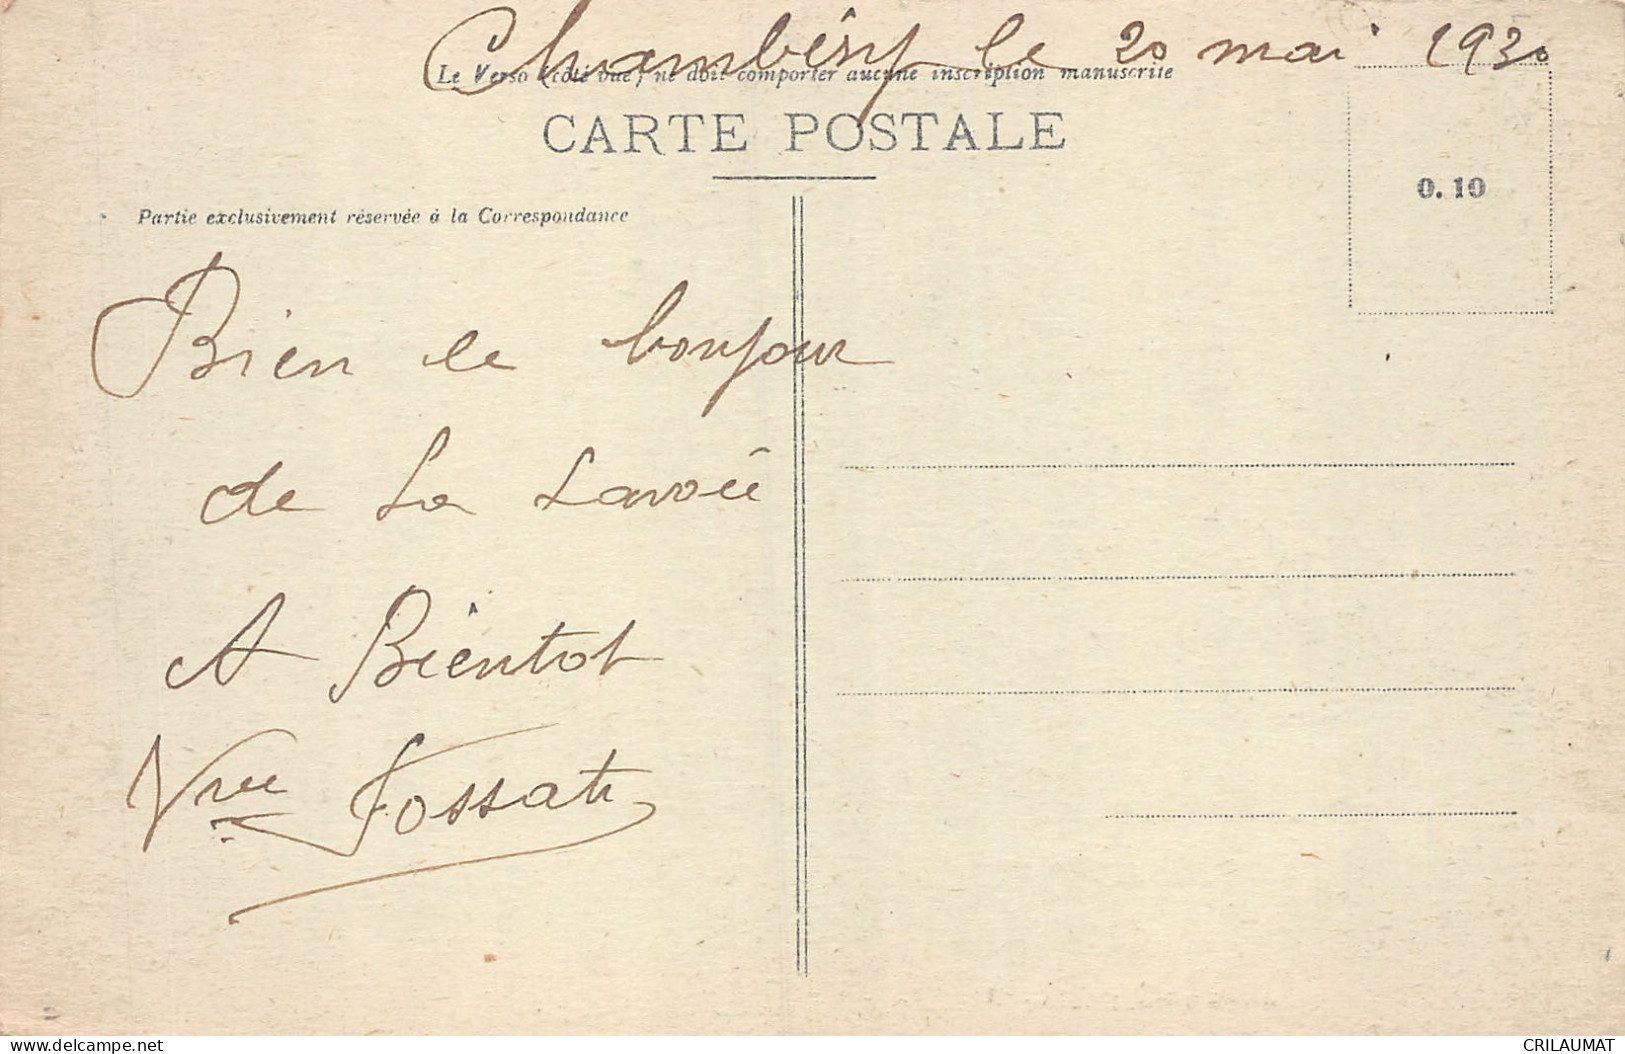 Chambéry le 20 mai 1930
Le Verso (côté vue) ne doit comporter aucune inscription manuscrite
CARTE POSTALE
0.10
Partie exclusivement réservée à la Correspondance
Bien le bonjour
de La Savoie
A Bientot
Vve Fossati
delcampe.net
CRILAUMAT